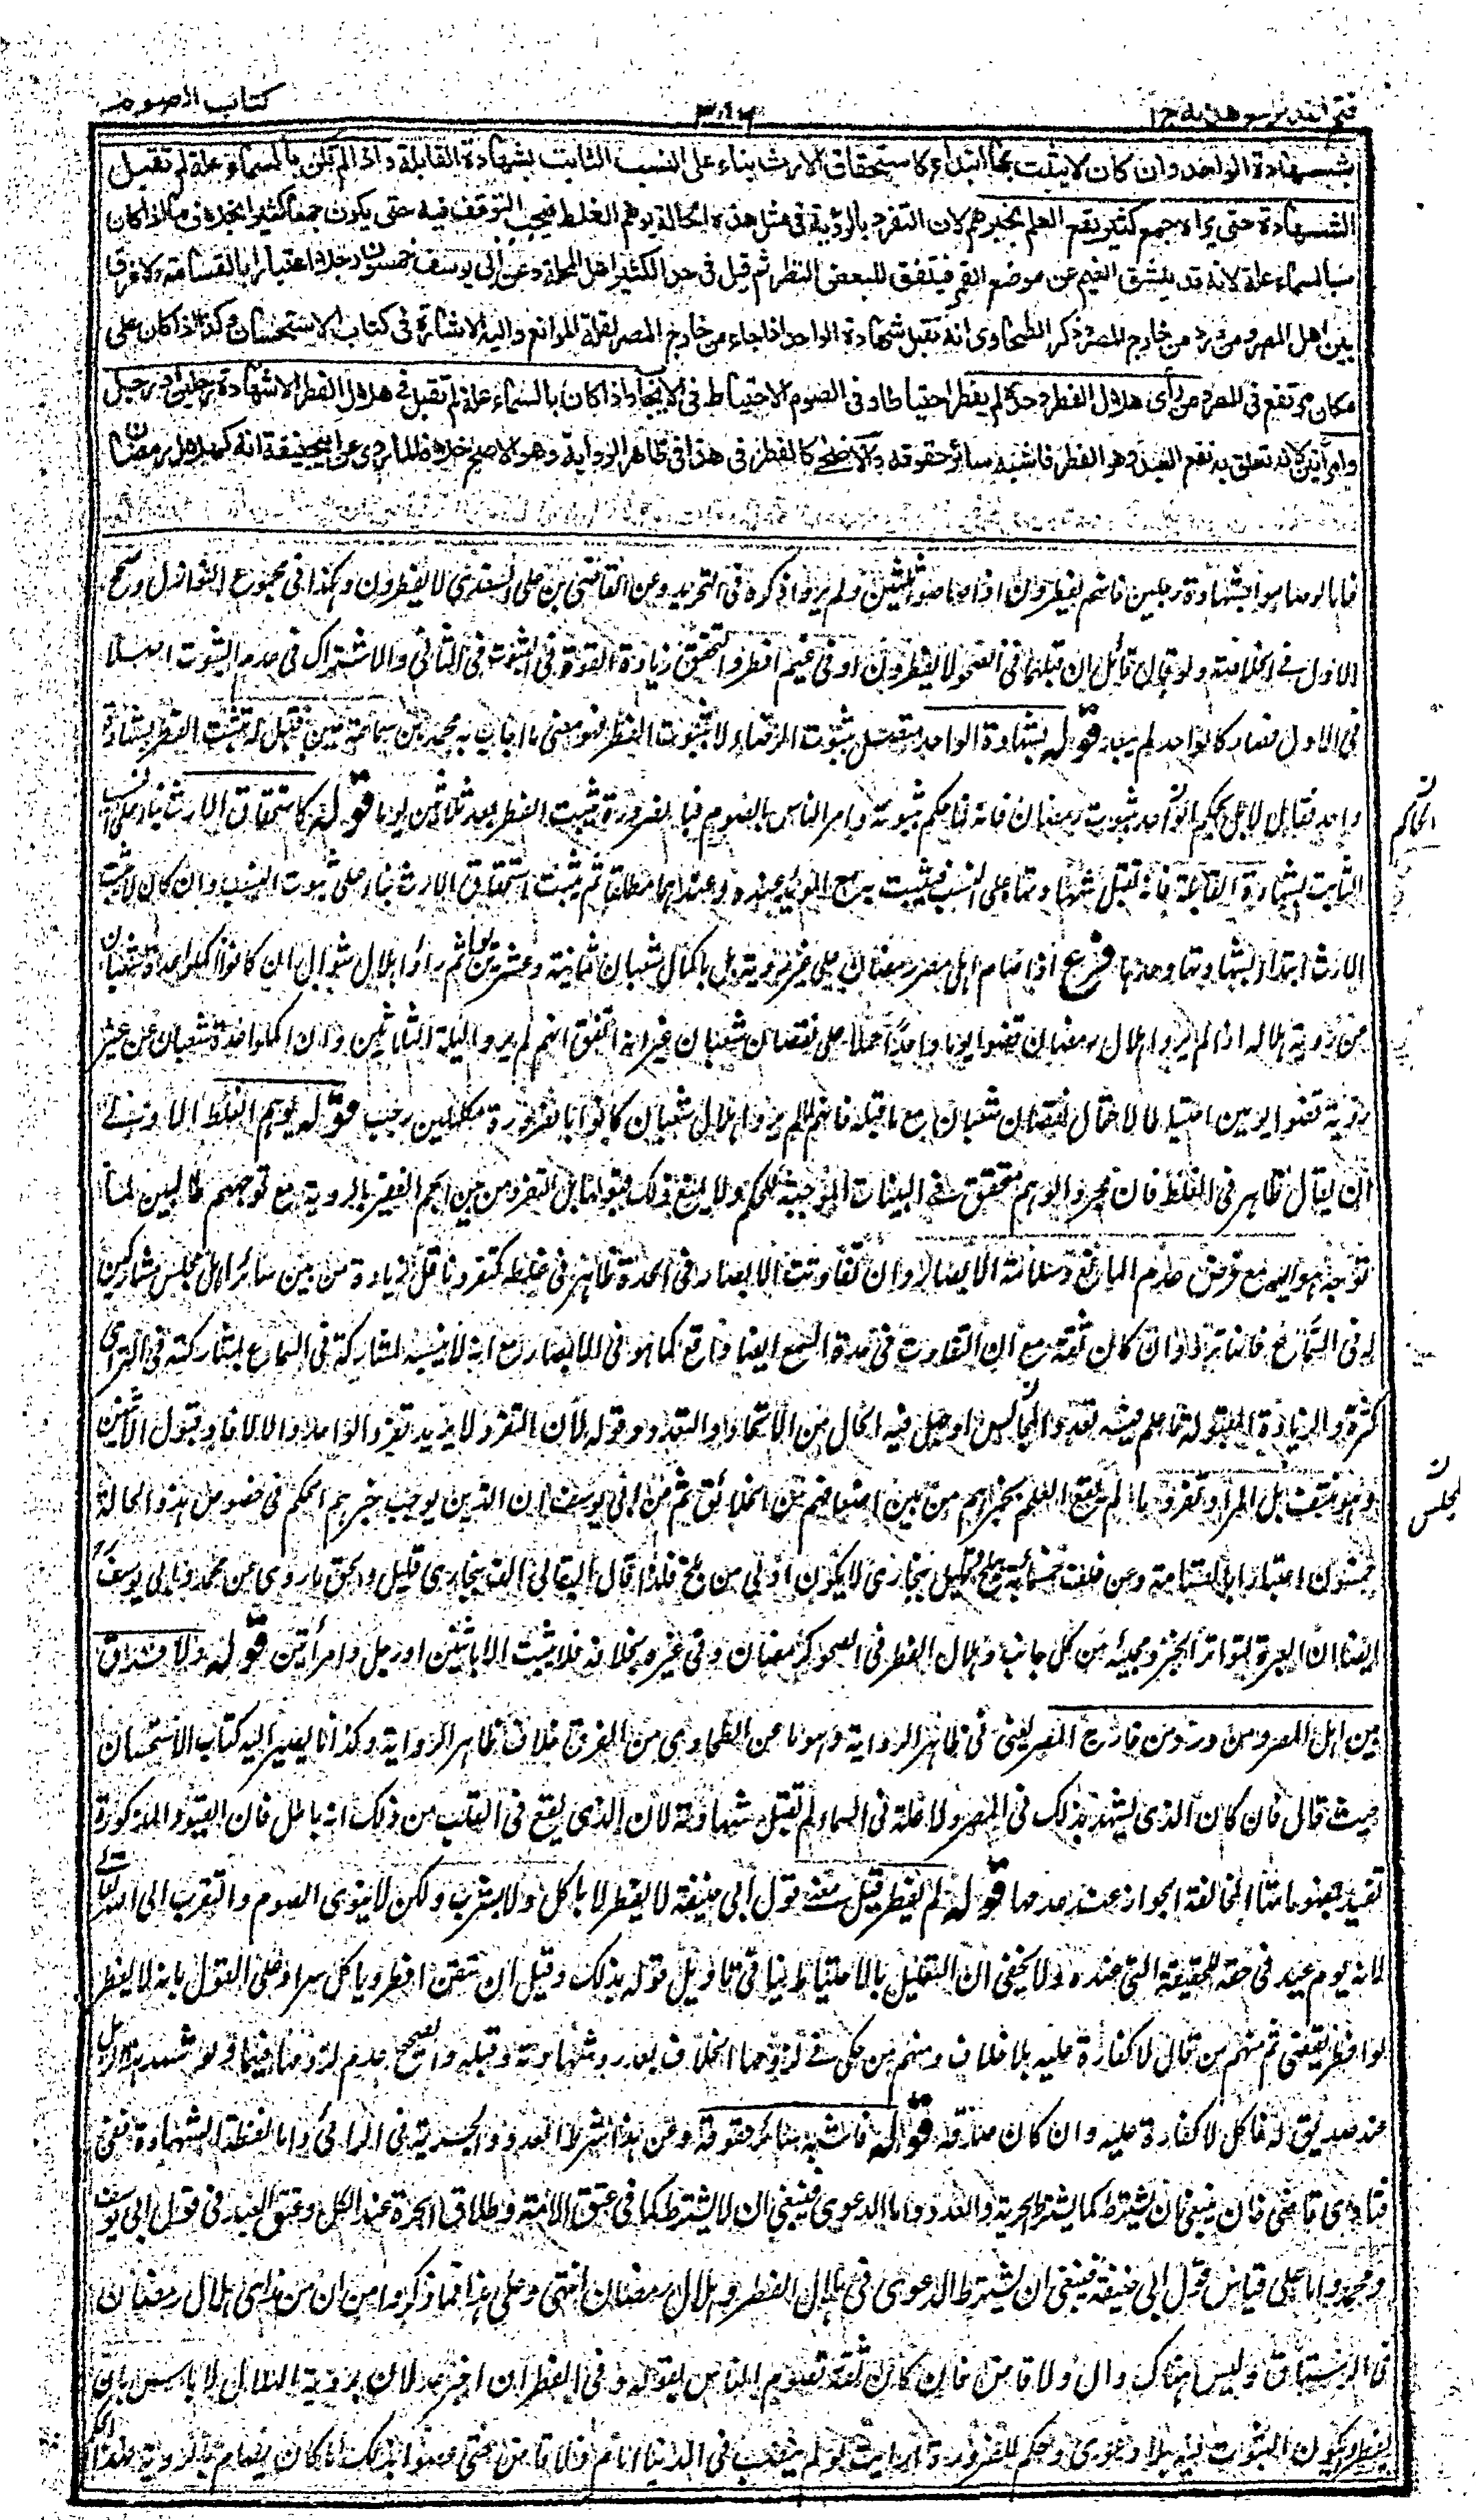 فتح القدير مع هداية ج ١
كتاب الصوم
بشهادة الواحد وان كان لا يثبت بها ابتداء كاستحقاق الارث بناء على النسب الثابت بشهادة القابلة واذا لم تكن بالسماء علة لم تقبل
الشهادة حتى يراه جمع كثير يقع العلم بخبرهم لان التفرد بالرؤية في مثل هذه الحالة يوهم الغلط فيجب التوقف فيه حتى يكون جمعا كثيرا بخلاف ما اذا كان
بالسماء علة لانه قد ينشق الغيم عن موضع القمر فيتفق للبعض النظر ثم قيل في حد الكثير اهل المحلة وعن ابي يوسف خمسون رجلا اعتبارا بالقسامة ولا فرق
بين اهل المصر ومن ورد من خارج المصر وذكر الطحاوي انه تقبل شهادة الواحد اذا جاء من خارج المصر لقلة الموانع واليه الاشارة في كتاب الاستحسان وكذا اذا كان على
مكان مرتفع في المصر ومن رأى هلال الفطر وحده لم يفطر احتياطا وفي الصوم الاحتياط في الايجاب واذا كان بالسماء علة لم تقبل في هلال الفطر الا شهادة رجلين او رجل
وامرأتين لانه تعلق به نفع العبد وهو الفطر فاشبه سائر حقوقه والاضحى كالفطر في هذا في ظاهر الرواية وهو الاصح خلافا لما روي عن ابي حنيفة انه كهلال رمضان
فاما لو صاموا بشهادة رجلين فانهم يفطرون اذا صاموا ثلثين ولم يروا ذكره في التجريد وعن القاضي بن علي السغدي لا يفطرون وهكذا في مجموع النوازل وصحح
الاول في الخلاصة ولو قال قائل ان قبلهما في الصحو لا يفطرون او في غيم افطروا لتحقق زيادة القوة في الثبوت في الثاني والاشتراك في عدم الثبوت اصلا
في الاول فصار كالواحد لم يبعد قوله بشهادة الواحد متصل بثبوت الرمضانية لا بثبوت الفطر فهو معنى ما اجاب به محمد بن سماعة حين قيل له يثبت الفطر بشهادة
واحد فقال لا بل بحكم الحاكم بثبوت رمضان فانه لما حكم بثبوته وامر الناس بالصوم فبالضرورة يثبت الفطر بعد ثلاثين يوما قوله كاستحقاق الارث بناء على النسب
الثابت بشهادة القابلة فانه تقبل شهادتها على النسب فيثبت مع المؤيد عنده وعندهما مطلقا ثم يثبت استحقاق الارث بناء على ثبوت النسب وان كان لا يثبت
الارث ابتداء بشهادتها وحدها فرع اذا صام اهل مصر رمضان على غير رؤية بل باكمال شعبان ثمانية وعشرين يوما ثم رأوا هلال شوال ان كانوا اكملوا عدة شعبان
من رؤية هلاله اذا لم يروا هلال رمضان قضوا يوما واحدا حملا على نقصان شعبان غير انه اتفق انهم لم يروا ليلة الثلاثين وان اكملوا عدة شعبان عن غير
رؤية قضوا يومين احتياطا لاحتمال نقصان شعبان مع ما قبله فانهم لما لم يروا هلال شعبان كانوا بالضرورة مكملين رجب قوله يوهم الغلط الاولى
ان يقال ظاهر في الغلط فان مجرد الوهم متحقق في البينات الموجبة للحكم ولا يمنع ذلك قبولها بل التفرد من بين الجم الغفير بالرؤية مع توجههم طالبين لما
توجه هو اليه مع فرض عدم المانع وسلامة الابصار وان تفاوتت الابصار في الحدة ظاهر في غلطه كتفرد ناقل زيادة من بين سائر اهل مجلس مشاركين
له في السماع فانها ترد وان كان ثقة مع ان التفاوت في حدة السمع ايضا واقع كما هو في الابصار مع انه لا نسبة لمشاركته في السماع بمشاركته في الترائي
كثرة والزيادة المقبولة ما علم فيه تعدد المجالس او جهل فيه الحال من الاتحاد والتعدد وقوله لان التفرد لا يريد تفرد الواحد والا لافاد قبول الاثنين
وهو منتف بل المراد تفرد من لم يقع العلم بخبرهم من بين اضعافهم من الخلائق ثم عن ابي يوسف ان الذين يوجب خبرهم الحكم في خصوص هذه الحالة
خمسون اعتبارا بالقسامة وعن خلف خمسمائة ببلخ قليل فبخارى لا يكون ادنى من بلخ فلذا قال البقالي الف ببخارى قليل والحق ما روي عن محمد وابي يوسف
ايضا ان العبرة لتواتر الخبر ومجيئه من كل جانب وهلال الفطر في الصحو كرمضان وفي غيره بخلافه فلا يثبت الا باثنين او رجل وامرأتين قوله ولا فرق
بين اهل المصر ومن ورد من خارج المصر يعني في ظاهر الرواية وما عن الطحاوي من الفرق خلاف ظاهر الرواية وكذا ما يشير اليه كتاب الاستحسان
حيث قال فان كان الذي يشهد بذلك في المصر ولا علة في السماء لم تقبل شهادته لان الذي يقع في القلب من ذلك انه باطل فان القيود المذكورة
تفيد بمفهوماتها المخالفة الجواز عند عدمها قوله لم يفطر قيل معنى قول ابي حنيفة لا يفطر لا يأكل ولا يشرب ولكن لا ينوي الصوم والتقرب الى الله تعالى
لانه يوم عيد في حقه للحقيقة التي عنده ولا يخفى ان التعليل بالاحتياط ينافي تأويل قوله بذلك وقيل ان تيقن افطر ويأكل سرا وعلى القول بانه لا يفطر
لو افطر يقضي ثم منهم من قال لا كفارة عليه بلا خلاف ومنهم من حكى في لزومها الخلاف بعد رد شهادته وقبله والصحيح عدم لزومها فيهما ولو شهد هذا الرجل
عند صديق له فاكل لا كفارة عليه وان كان صدقه قوله فاشبه سائر حقوقه وعن هذا شرط العدد والحرية في الرائي واما لفظة الشهادة ففي
فتاوى قاضي خان ينبغي ان يشترط كما يشترط الحرية والعدد واما الدعوى فينبغي ان لا يشترط كما في عتق الامة وطلاق الحرة عند الكل وعتق العبد في قول ابي يوسف
ومحمد واما على قياس قول ابي حنيفة فينبغي ان يشترط الدعوى في هلال الفطر وهلال رمضان انتهى وعلى هذا فما ذكروا من ان من رأى هلال رمضان
في الرستاق وليس هناك وال ولا قاض فان كان ثقة يصوم الناس بقوله وفي الفطر ان اخبر عدلان برؤية الهلال لا بأس بان
يفطروا يكون الثبوت فيه بلا دعوى وحكم للضرورة ارأيت لو لم ينصب في الدنيا امام ولا قاض حتى عصوا بذلك اما كان يصام بالرؤية فهذا الحكم
الحاكم
المجلس